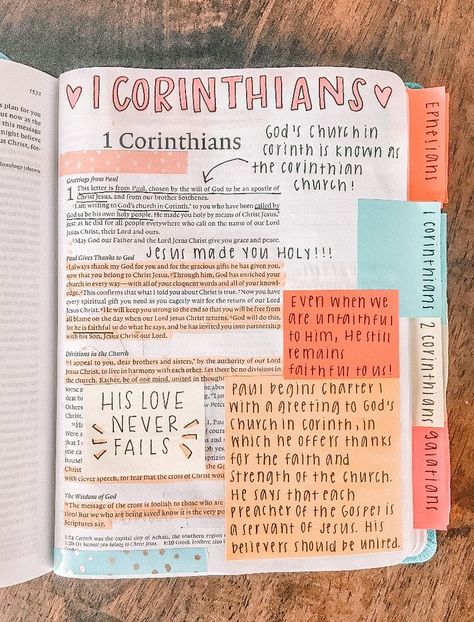 1531
s plan for you
but now as the
this message
might believe
us Christ, for-
Doxology is shown
♡ 1 CORINTHIANS ♡
1 Corinthians
GOD'S CHURCH IN
CORINTH IS KNOWN AS
THE CORINTHIAN
CHURCH!
Greetings from Paul
1 This letter is from Paul, chosen by the will of God to be an apostle of
Christ Jesus, and from our brother Sosthenes.
I am writing to God's church in Corinth, to you who have been called by
God to be his own holy people. He made you holy by means of Christ Jesus,
just as he did for all people everywhere who call on the name of our Lord
Jesus Christ, their Lord and ours.
May God our Father and the Lord Jesus Christ give you grace and peace.
JESUS MADE YOU HOLY!!!
Paul Gives Thanks to God
I always thank my God for you and for the gracious gifts he has given you,
now that you belong to Christ Jesus. Through him, God has enriched your
church in every way—with all of your eloquent words and all of your knowl-
edge. This confirms that what I told you about Christ is true. Now you have
every spiritual gift you need as you eagerly wait for the return of our Lord
Jesus Christ. He will keep you strong to the end so that you will be free from
all blame on the day when our Lord Jesus Christ returns. God will do this,
for he is faithful to do what he says, and he has invited you into partnership
with his Son, Jesus Christ our Lord.
EVEN WHEN WE
ARE UNFAITHFUL
TO HIM, HE STILL
REMAINS
FAITHFUL TO US!
Divisions in the Church
I appeal to you, dear brothers and sisters, by the authority of our Lord
Jesus Christ, to live in harmony with each other. Let there be no divisions in
the church. Rather, be of one mind, united in thought
HIS LOVE
NEVER
FAILS
with clever speech, for fear that the cross of Christ
PAUL BEGINS CHAPTER 1
WITH A GREETING TO GOD'S
CHURCH IN CORINTH, IN
WHICH HE OFFERS THANKS
FOR THE FAITH AND
STRENGTH OF THE CHURCH.
HE SAYS THAT EACH
PREACHER OF THE GOSPEL IS
A SERVANT OF JESUS. HIS
BELIEVERS SHOULD BE UNITED.
The Wisdom of God
The message of the cross is foolish to those who are
tion! But we who are being saved know it is the very
Scriptures say,
1:2a Corinth was the capital city of Achaia, the southern region
EPHESIANS
1 CORINTHIANS
2 CORINTHIANS
GALATIANS